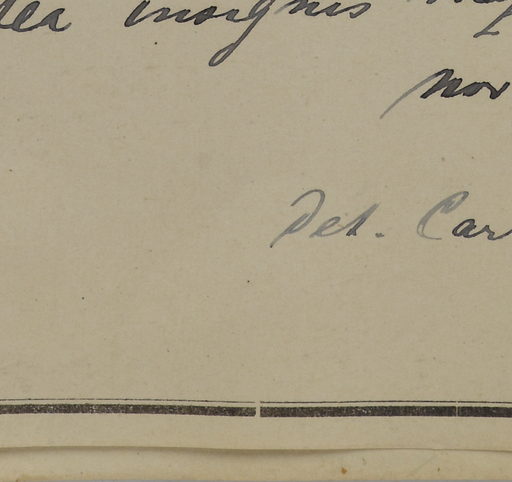 insignis
nov
Det. Car